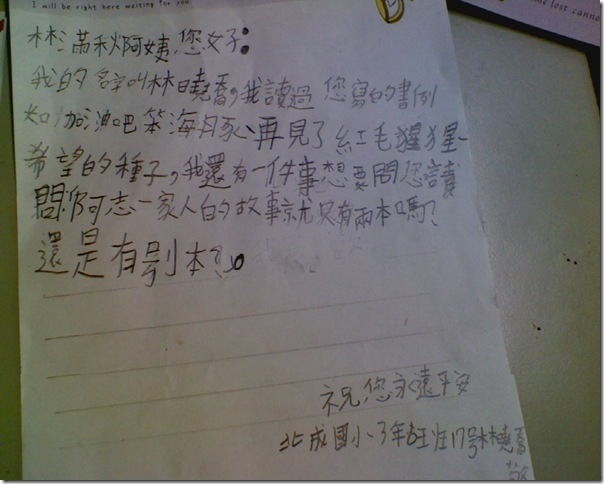 I will be right here waiting for you
林滿秋阿姨,您好:
我的名字叫林曉喬,我讀過 您寫的書例
如:加油吧笨海豚、再見了紅毛猩猩-
希望的種子,我還有一件事想要問您請
問:阿志一家人的故事就只有兩本嗎?
還是有別本?。
祝您永遠平安
北成國小3年 班 17號林曉喬
敬